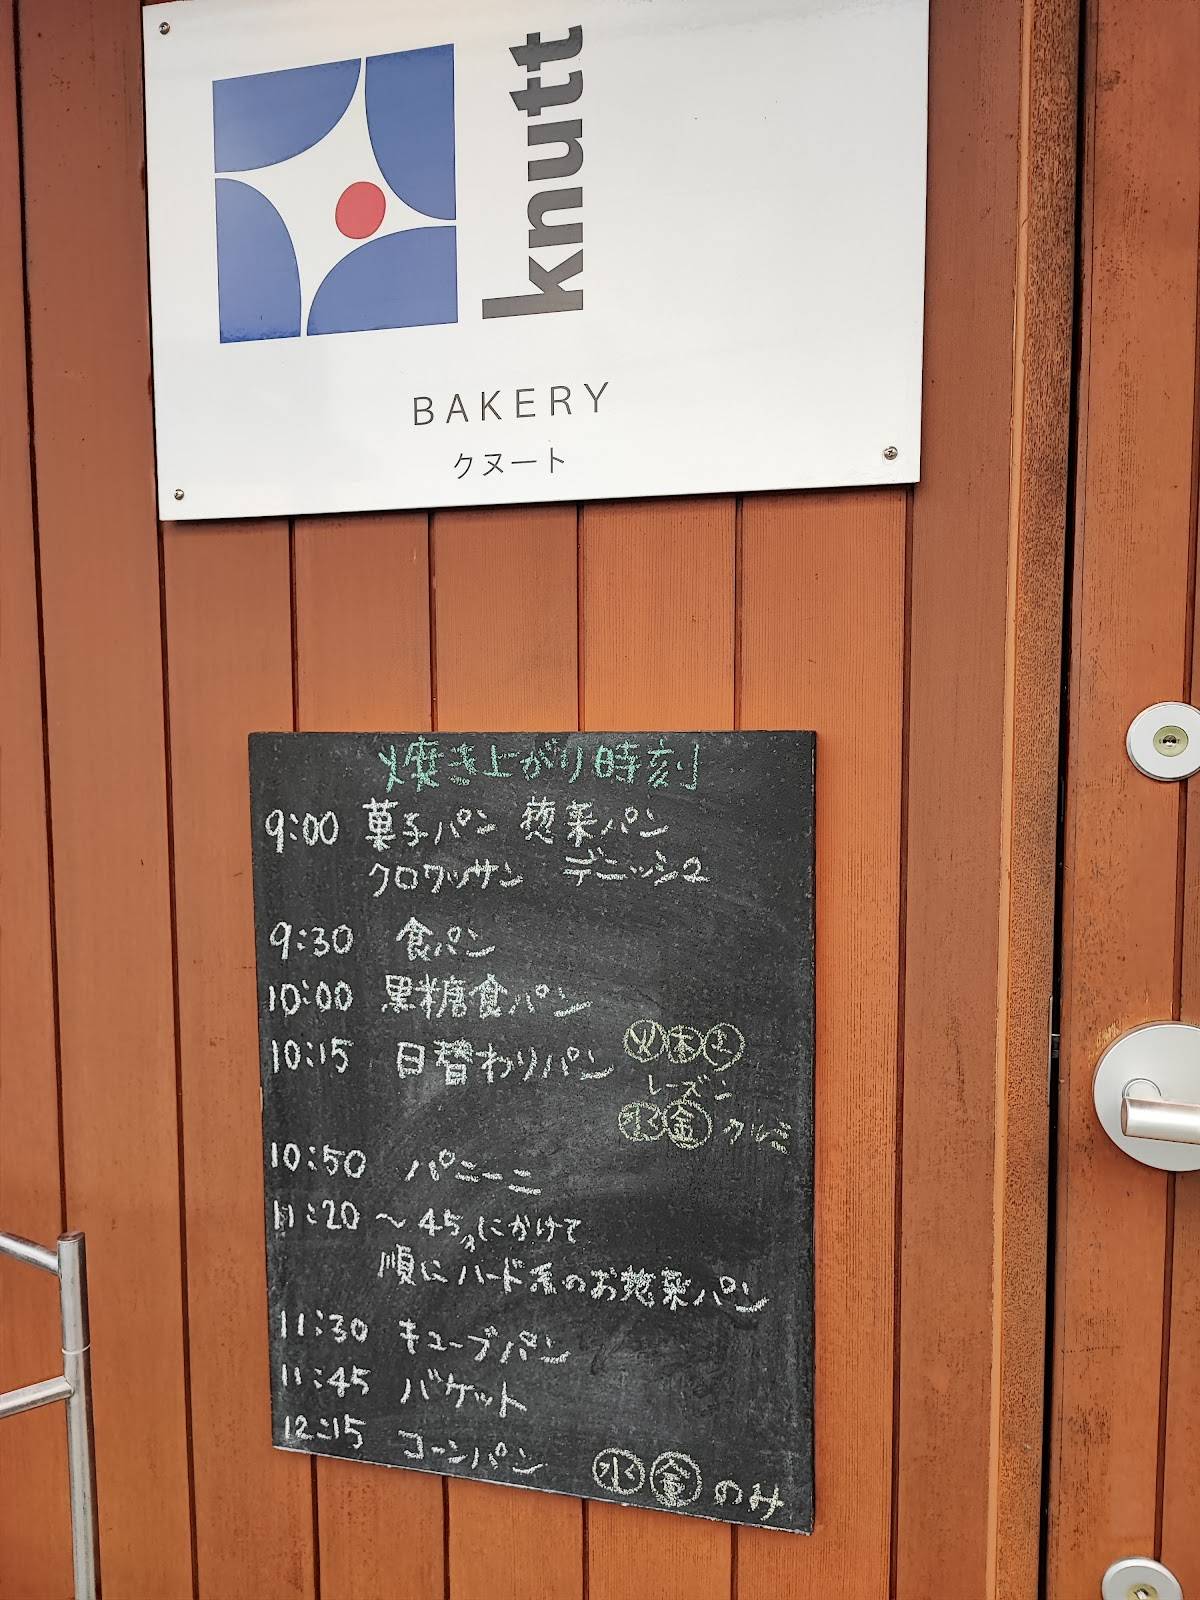 knutt
BAKERY
クヌート
焼き上がり時刻
9:00 菓子パン 惣菜パン
クロワッサン デニッシュ
9:30 食パン
10:00 黒糖食パン
10:15 日替わりパン 火木土
レーズン
水金 クルミ
10:50 パニーニ
11:20 〜45分にかけて
順にハード系のお惣菜パン
11:30 キューブパン
11:45 バケット
12:15 コーンパン 水金のみ